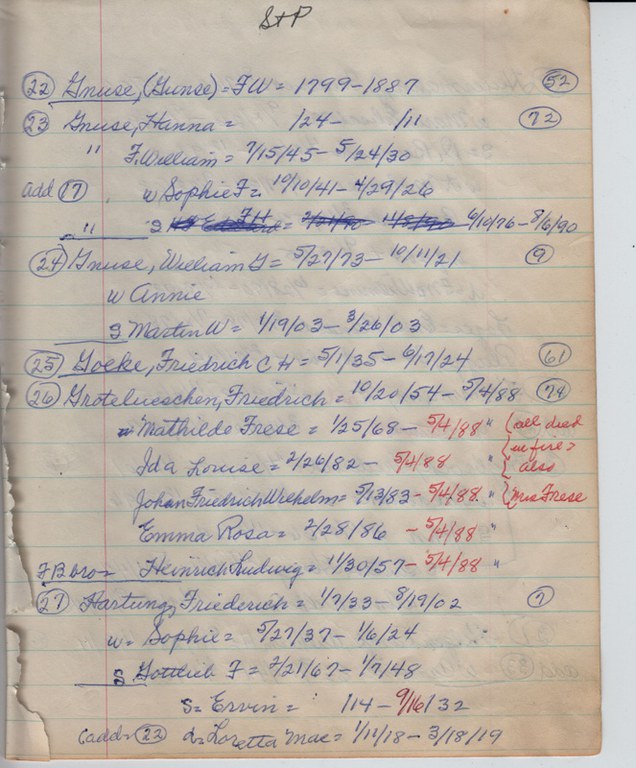 S+P
(22) Gnuse, (Gunse) = FW = 1799-1887 (52)
(23) Gnuse, Hanna = /24- /11 (72)
" F. William = 7/15/45- 5/24/30
add (17) w Sophie F= 10/10/41- 4/29/26
" S FH = 6/10/76-8/6/90
(24) Gnuse, William G= 5/27/73- 10/11/21 (9)
w Annie
S Martin W= 1/19/03- 3/26/03
(25) Goeke, Friedrich C H= 5/1/35- 6/17/24 (61)
(26) Grotelueschen, Friedrich = 10/20/54- 5/4/88 (74)
w Mathilde Frese = 1/25/68- 5/4/88 " { all died
Ida Louise = 2/26/82- 5/4/88 " { in fire > also
Johan Friedrich Wilhelm= 5/13/83-5/4/88 " { Mrs Frese
Emma Rosa = 2/28/86 - 5/4/88 "
FB bro= Heinrich Ludwig = 11/30/57-5/4/88 "
(27) Hartung, Friederich = 1/7/33- 8/19/02 (7)
w= Sophie= 5/27/37- 1/6/24
S Gottlieb F = 2/21/67- 1/7/48
S= Ervin= /14 - 9/16/32
(add= (22) d= Loretta Mae= 1/11/18 - 3/18/19